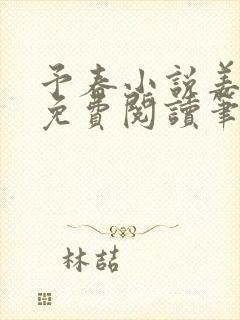 予春小說姜
免費閱讀筆
林喆